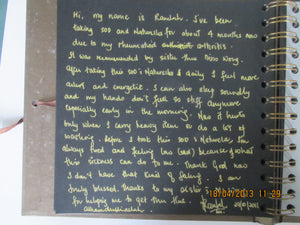 Hi, my name is Ramlah. I've been
taking SOD and Naturella for about 4 months now
due to my rheumatoid arthritis.
It was recommended by sister
After taking this SOD & Naturella & daily I feel more
alert and energetic. I can also sleep soundly
and my hands don't feel so stiff anymore
especially early in the morning. Now it hurts
only when I carry heavy item or do a lot of
washing. Before I took this SOD & Naturella I'm
always tired and feeling low (sad) because of what
this sickness can do to me. Thank God now
I don't have that kind of feeling. I am
truly blessed. Thanks to my sister
for helping me to get thru that
18/04/2013 11:29